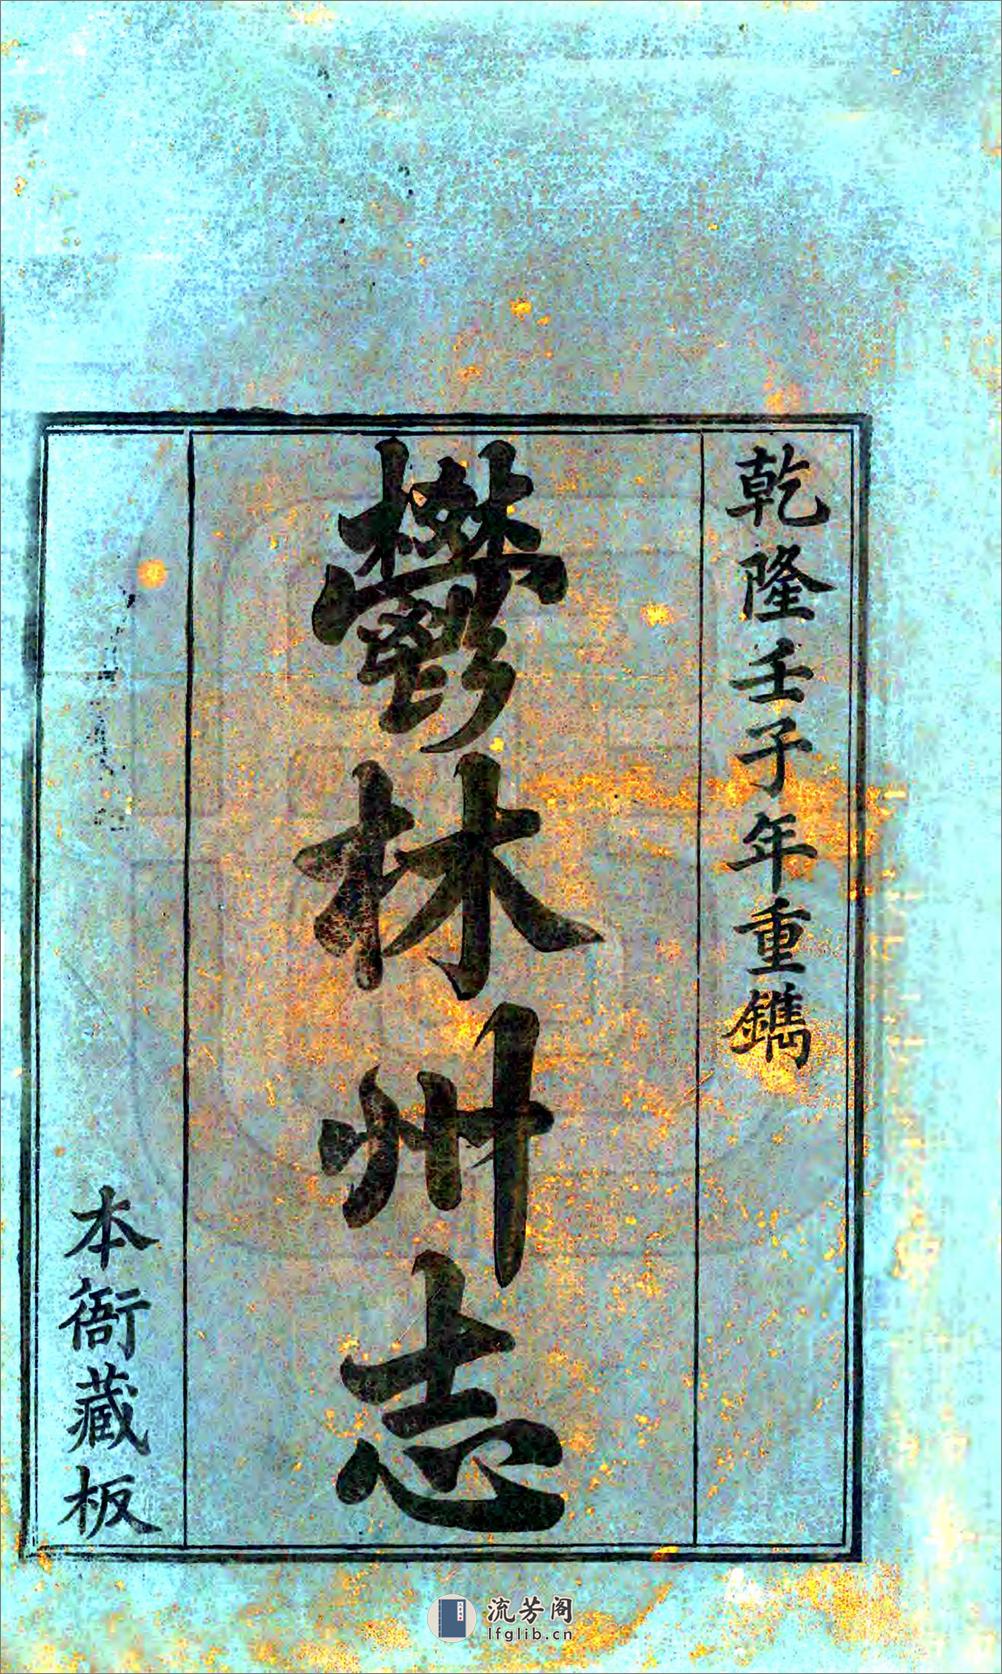 乾隆壬子年重鐫
鬱林州志
本衙藏板
流芳阁
lfglib.cn